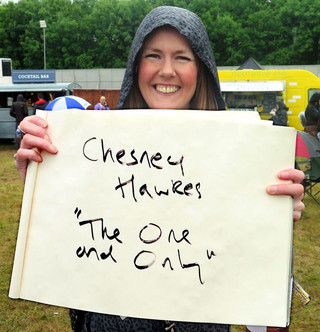 COCKTAIL BAR
Chesney
Hawkes
"The One
and Only"